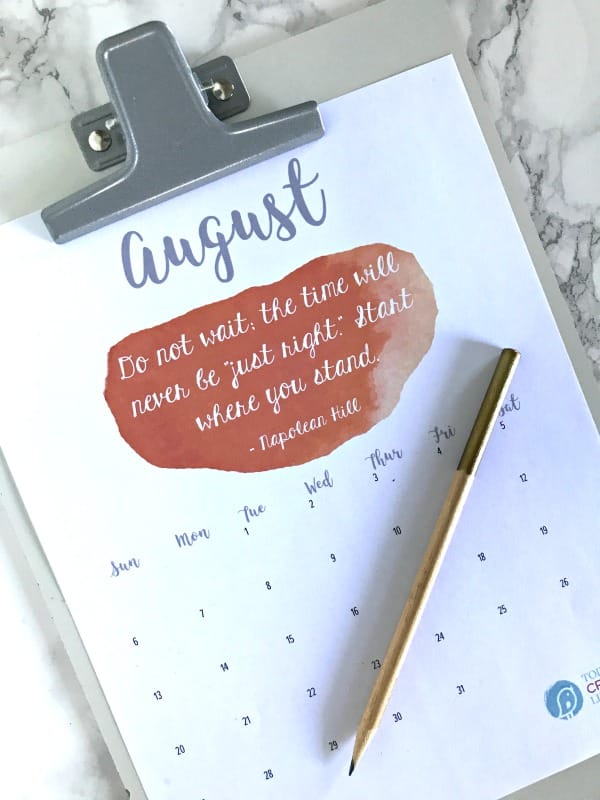 August
Do not wait; the time will
never be "just right." Start
where you stand.
- Napolean Hill
Sun Mon Tue Wed Thur Fri Sat
1 2 3 4 5
6 7 8 9 10 12
13 14 15 16 18 19
20 21 22 23 24 25 26
28 29 30 31